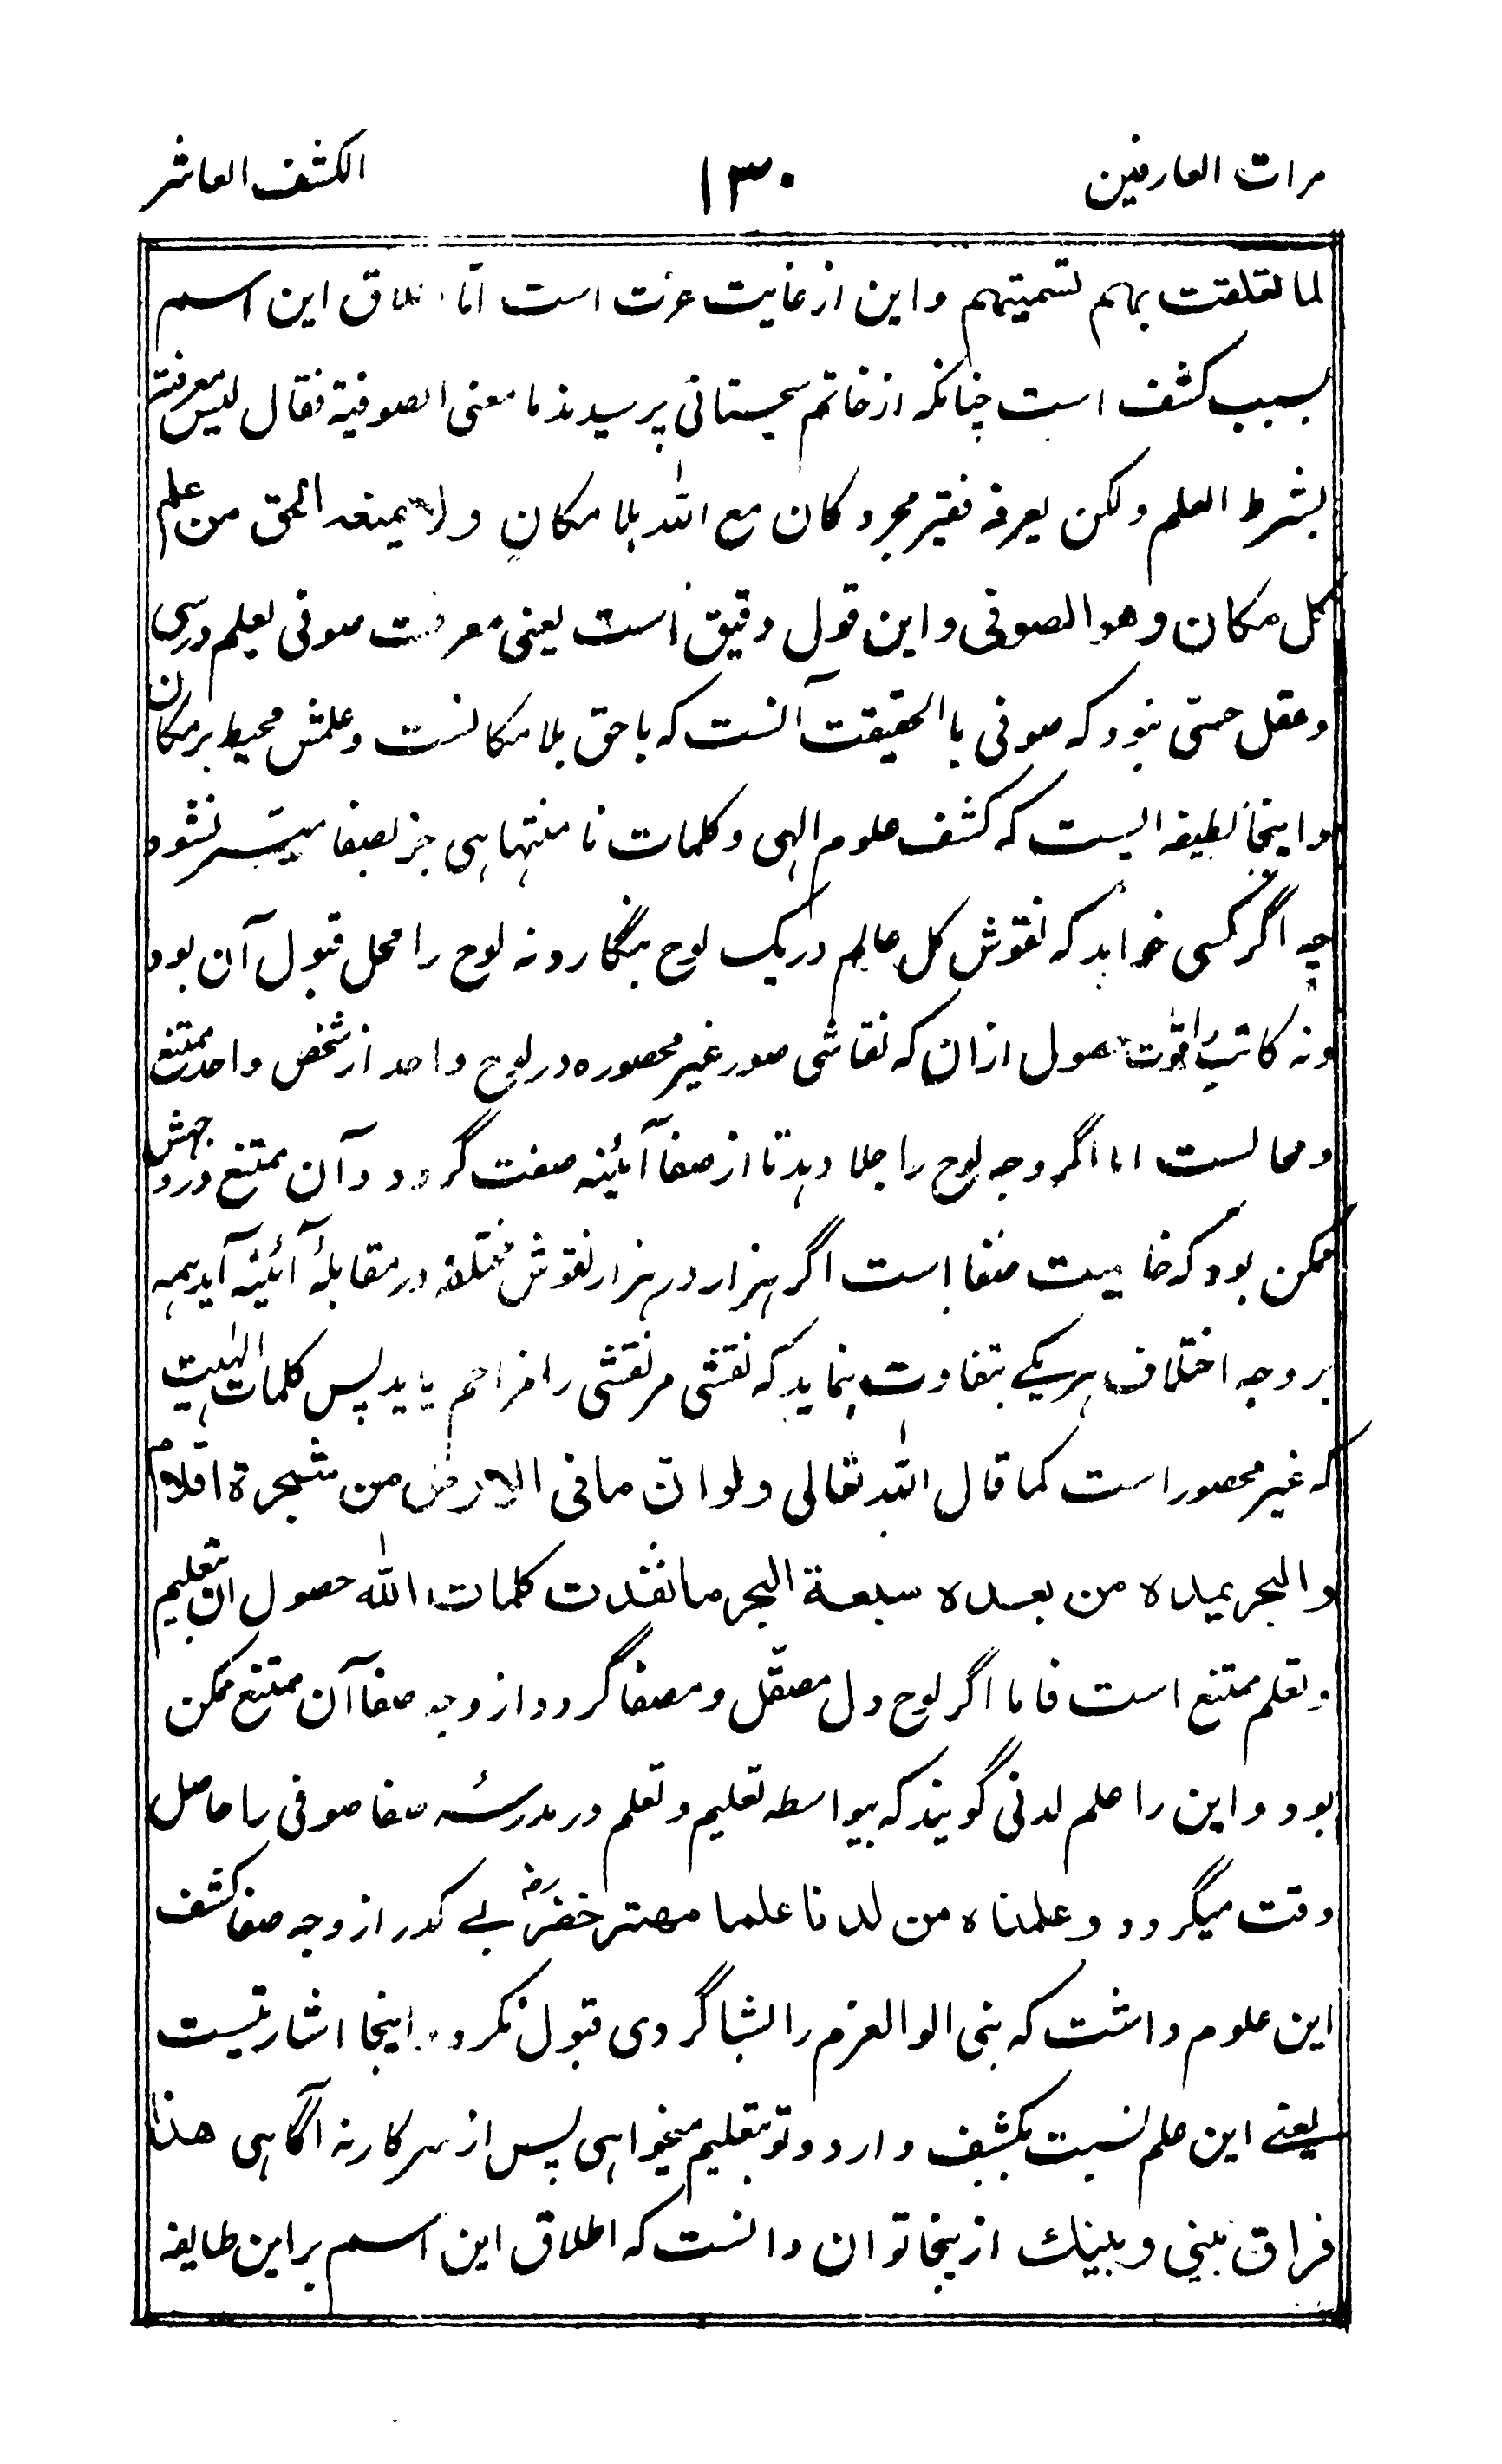 مرات العارفین ۱۳۰ الکشف العاشر
لما تعلقت بهم تسمیتهم و این از غایت عزت است اما اطلاق این اسم
بسبب کشف است چنانکه از خاتم سجستانی پرسیدند ما معنی الصوفیة فقال لیس معرفته
بشرط العلم ولکن یعرفه فقیر مجرد کان مع الله بلا مکانٍ ولا یمنعه الحق من علم
کل مکان وهو الصوفی و این قول دقیق است یعنی معرفت صوفی بعلم درسی
و عقل حسّی نبود که صوفی با الحقیقت آنست که با حق بلا مکانست و علمش محیط بر مکان
و اینجا لطیفه ایست که کشف علوم الهی و کلمات نا منتهاهی جز بصفا میسّر نشود
چه اگر کسی خواهد که نقوش کل عالم در یک لوح بنگارد نه لوح را محل قبول آن بود
و نه کاتب را قوت حصول ازان که نقاشی صور غیر محصوره در لوح واحد از شخص واحد ممتنع
و محالست اما اگر وجه لوح را جلا دهد تا از صفا آئینه صفت گردد و آن ممتنع در وجهش
ممکن بود که خاصیت صفا است اگر هزار در هزار نقوش مختلفه در مقابلهٔ آئینه آید همه
بر وجه اختلاف هر یکے بتفاوت بنماید که نقشی مر نقشی را مزاحم یابد پس کلمات الهیت
که غیر محصور است کما قال الله تعالی ولو انّ ما فی الارض من شجرة اقلام
والبحر یمده من بعده سبعة البحر ما نفدت کلمات الله حصول آن بتعلیم
و تعلم ممتنع است فاما اگر لوح دل مصقّل و مصفا گردد از وجه صفا آن ممتنع ممکن
بود و این را علم لدنی گویند که بیواسطه تعلیم و تعلم در مدرسهٔ صفا صوفی را حاصل
وقت میگردد و علمناه من لدنا علما مهتر خضرؑ بے کدر از وجه صفا کشف
این علوم داشت که بنی الوالعزم را بشاگردی قبول نکرد. اینجا اشارتیست
یعنے این علم نسبت بکشف دارد و تو بتعلیم میخواهی پس از سر کار نه آگاهی هذا
فراق بینی و بینک ازینجا توان دانست که اطلاق این اسم بر این طایفه